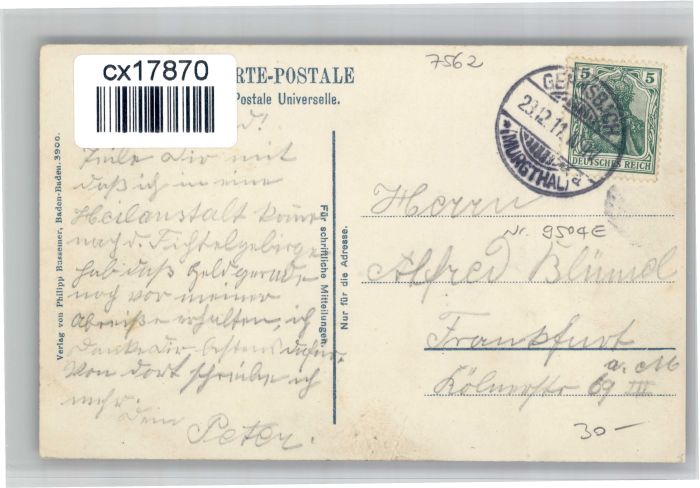 cx17870
RTE-POSTALE
Postale Universelle.
7562
GERNSBACH
23.12.11.
(MURGTHAL)
5 5
DEUTSCHES REICH
Verlag von Philipp Bussemer, Baden-Baden. 3900.
Für schriftliche Mitteilungen.
Nur für die Adresse.
d!
Teile Dir mit
daß ich in eine
Heilanstalt komme
nach d. Fichtelgebirge
hab daß Geld gerade
noch vor meiner
Abreiße erhalten, ich
danke dir bestens dafür.
Von dort schreibe ich
mehr.
Dein
Peter.
Herrn
Nr. 9504E
Alfred Blümel
Frankfurt
a. M
Kölnerstr 69 III
30-